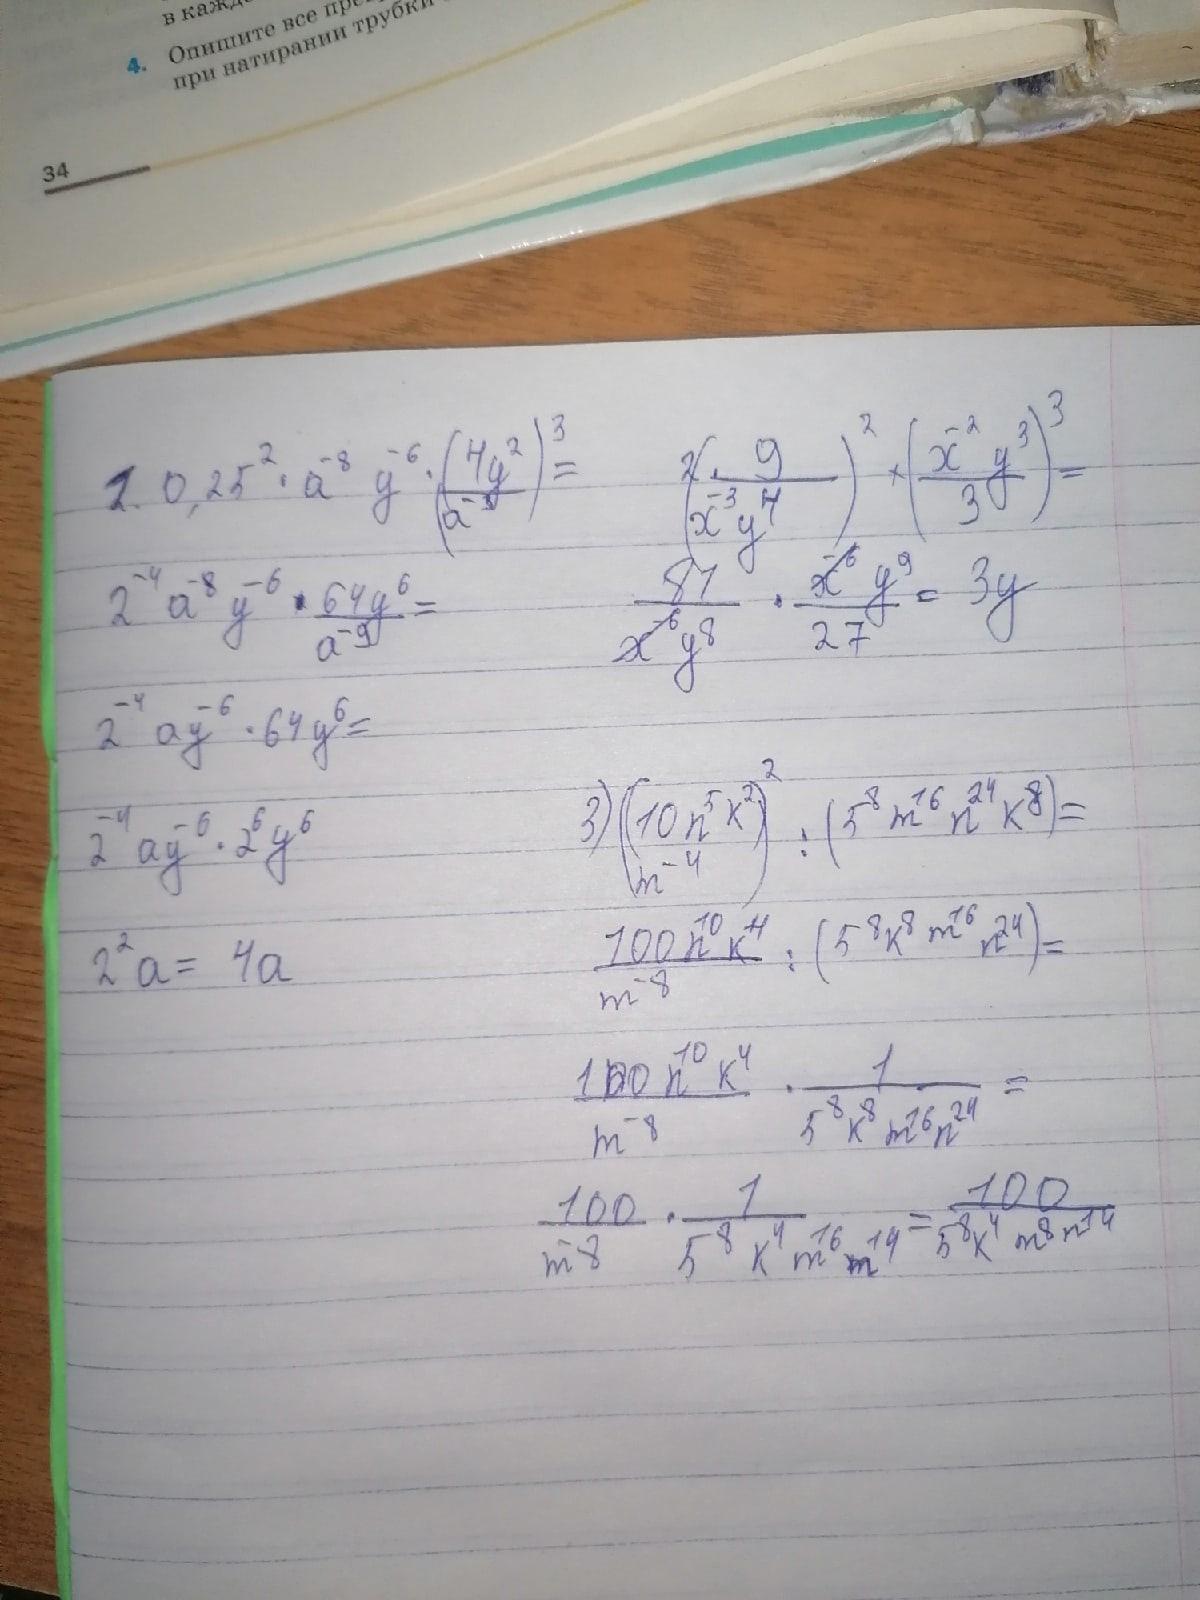 в кажд
4. Опишите все
при натирании трубки
34
1. 0,25² · a⁻⁸ y⁻⁶ · (4y²/a⁻³)³ =
2⁻⁴ a⁻⁸ y⁻⁶ · 64y⁶/a⁻⁹ =
2⁻⁴ ay⁻⁶ · 64y⁶ =
2⁻⁴ ay⁻⁶ · 2⁶y⁶
2²a = 4a
2 (9/x⁻³y⁴)² × (x⁻²y³/3)³ =
81/x⁻⁶y⁸ · x⁻⁶y⁹/27 = 3y
3) (10n⁵k²/m⁻⁴)² : (5⁸m¹⁶n²⁴k⁸) =
100n¹⁰k⁴/m⁻⁸ : (5⁸k⁸m¹⁶n²⁴) =
100n¹⁰k⁴/m⁻⁸ · 1/5⁸k⁸m¹⁶n²⁴ =
100/m⁻⁸ · 1/5⁸k⁴m¹⁶m¹⁴ = 100/5⁸k⁴m⁸n¹⁴